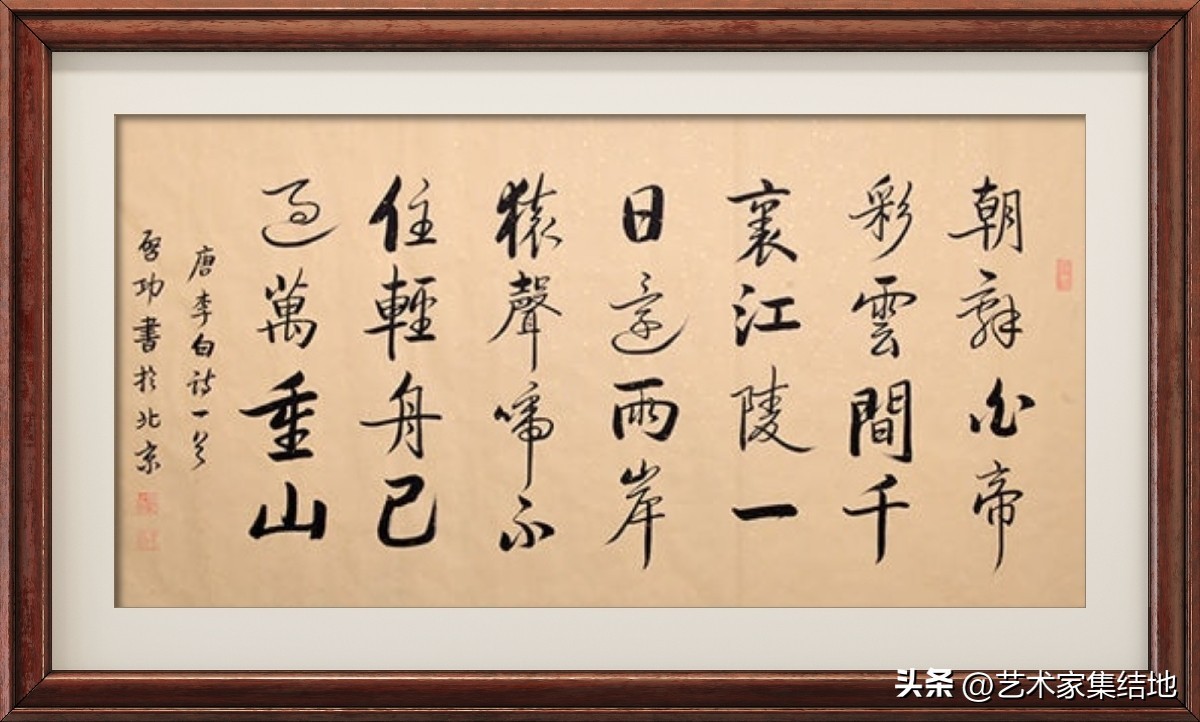 朝辭白帝
彩雲間千
裏江陵一
日還兩岸
猿聲啼不
住輕舟已
過萬重山
唐李白詩一首
啟功書於北京
头条 @艺术家集结地